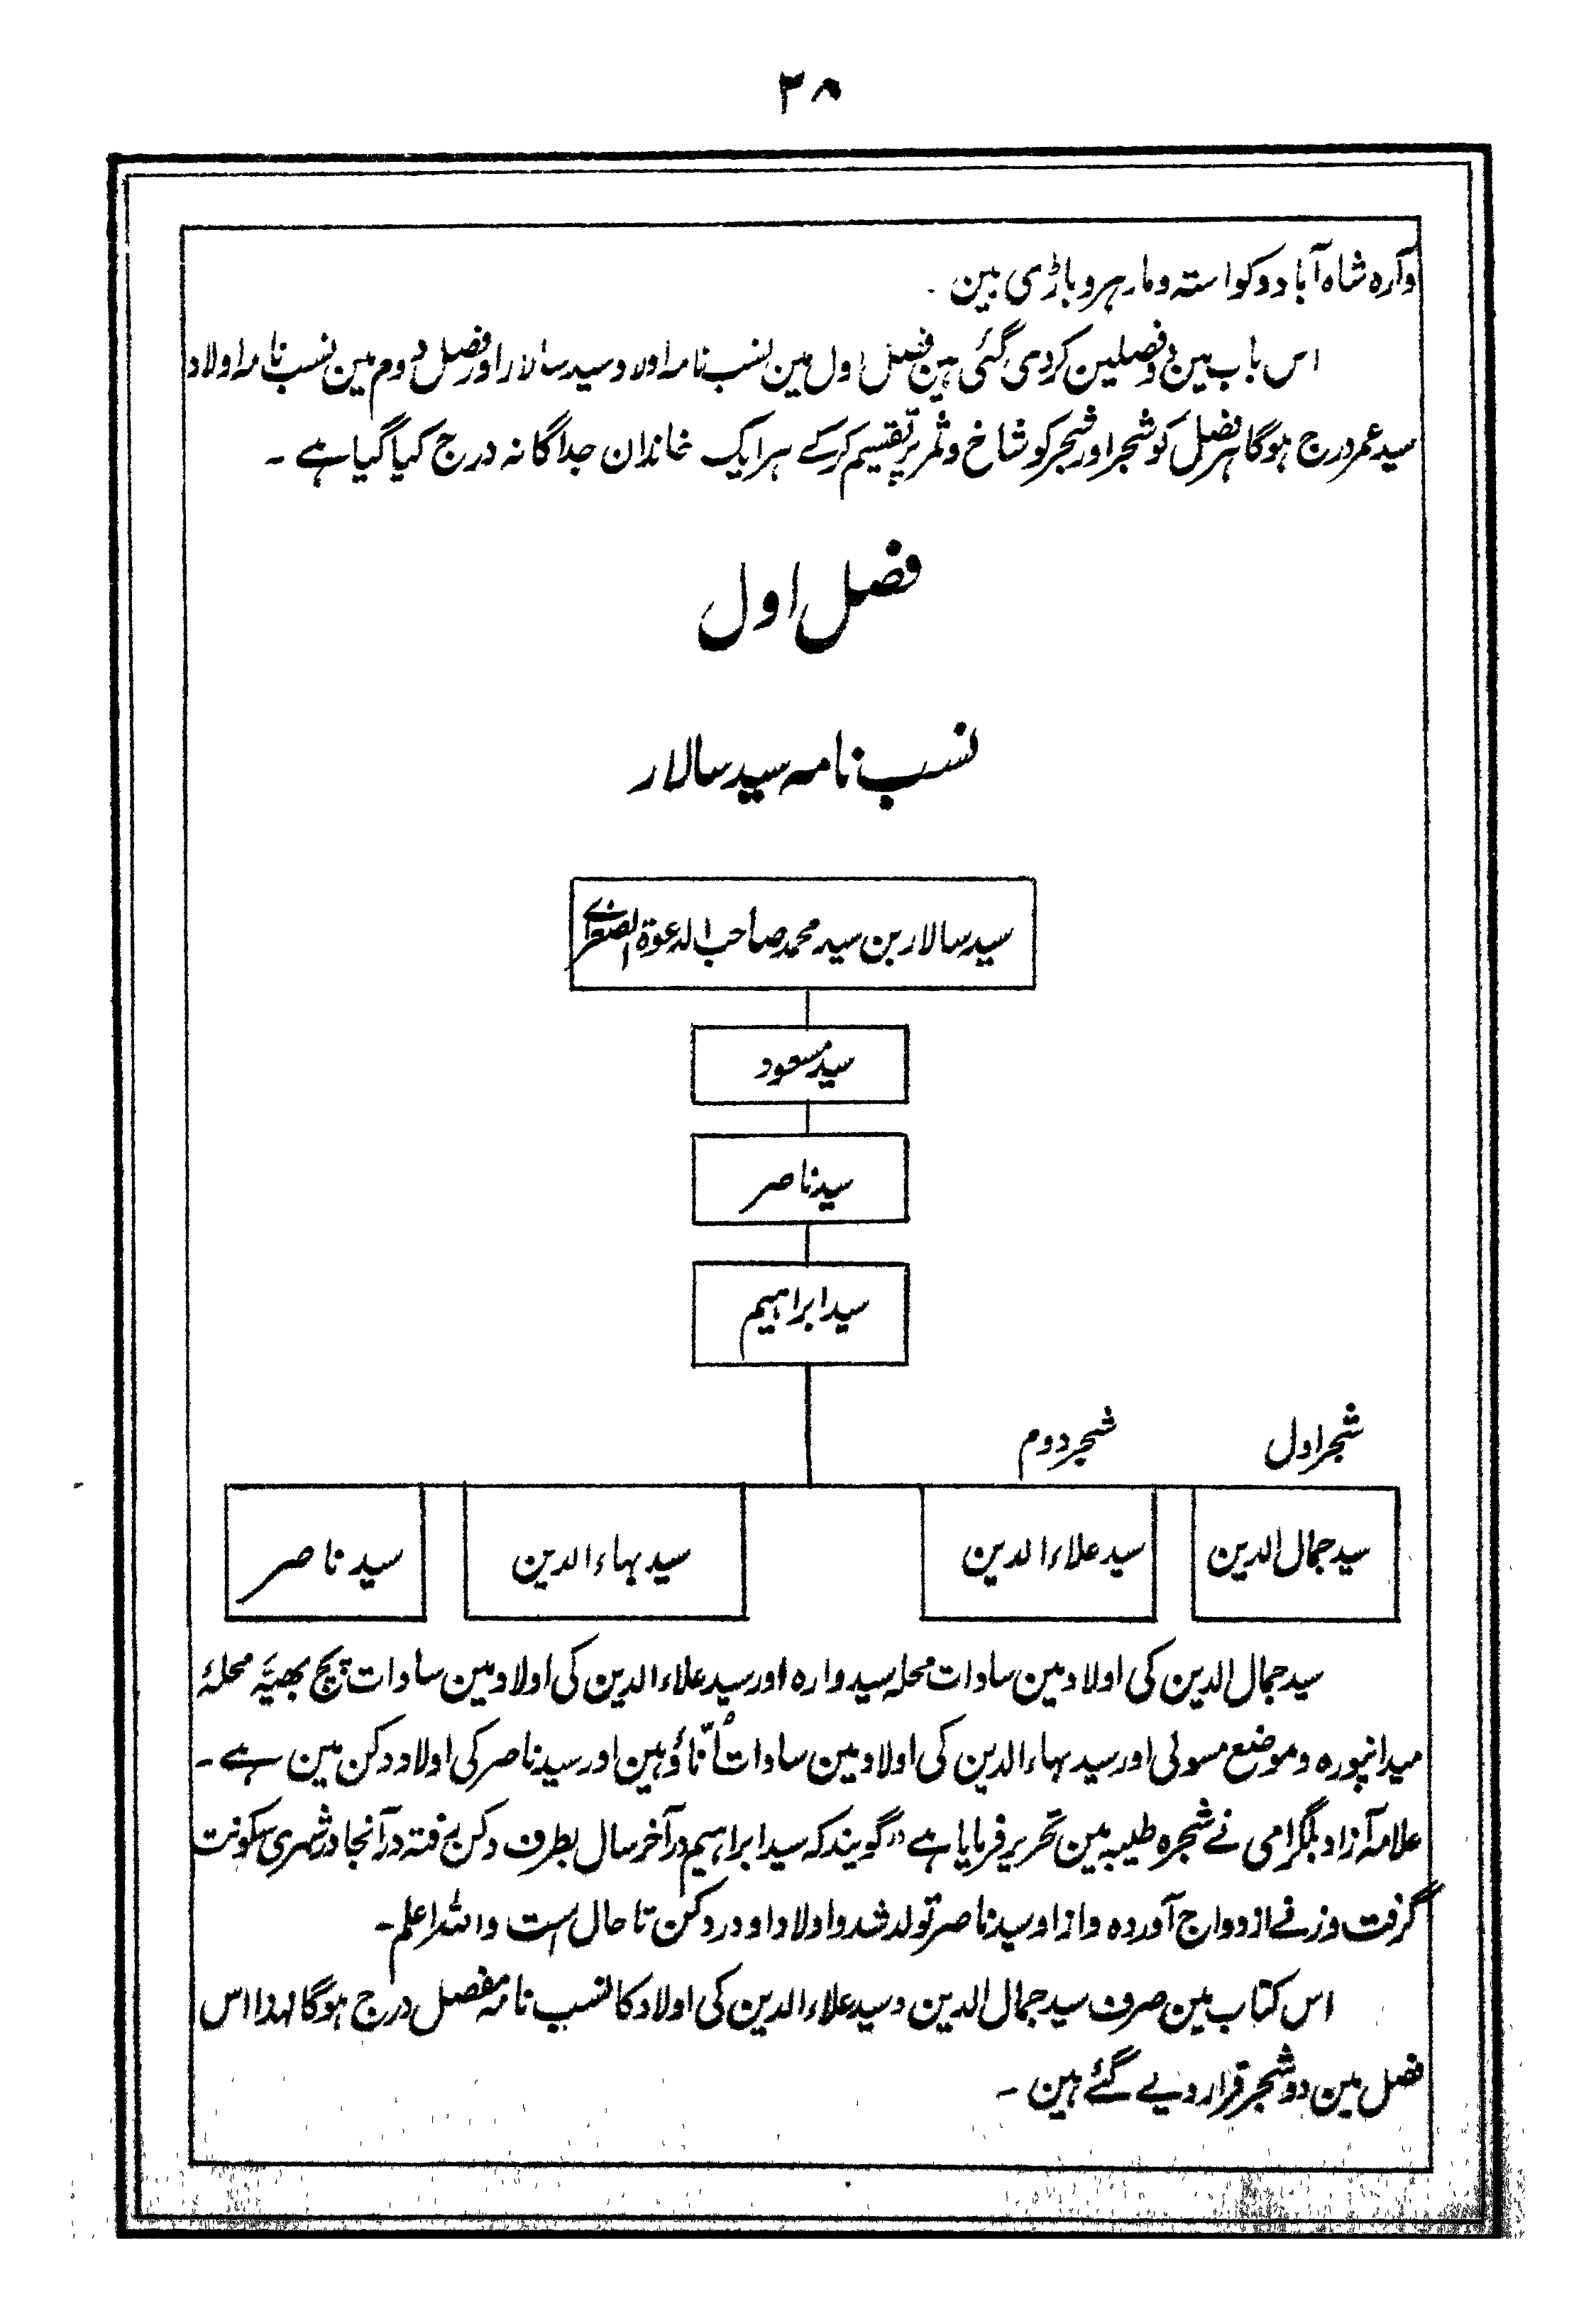 ۳۸
وآرہ شاہ آباد و کواستہ و مارہرو باڑی مین -
اس باب مین دو فصلین کردی گئی ہین فصل اول مین نسب نامہ اولاد سید سالار اور فصل دوم مین نسب نامہ اولاد
سید عمر درج ہوگا ہر فصل کو شجر اور شجر کو شاخ و ثمر پر تقسیم کرکے ہر ایک خاندان جداگانہ درج کیا گیا ہے -
فصل اول
نسب نامہ سید سالار
سید سالار بن سید محمد صاحب الدعوۃ الصغرے
سید مسعود
سید ناصر
سید ابراہیم
شجر اول
شجر دوم
سید جمال الدین
سید علاء الدین
سید بہاء الدین
سید ناصر
سید جمال الدین کی اولاد مین سادات محلہ سیدوارہ اور سید علاء الدین کی اولاد مین سادات پچ بھیّہ محلۂ
میدانپورہ و موضع مسولی اور سید بہاء الدین کی اولاد مین سادات اُنّاؤ ہین اور سید ناصر کی اولاد دکن مین ہے -
علامہ آزاد بلگرامی نے شجرہ طیبہ مین تحریر فرمایا ہے "گویند کہ سید ابراہیم در آخر سال بطرف دکن رفتہ در آنجا در شہری سکونت
گرفت وزنے از دواج آوردہ و از او سید ناصر تولد شد و اولاد او در دکن تا حال است واللہ اعلم -
اس کتاب مین صرف سید جمال الدین و سید علاء الدین کی اولاد کا نسب نامہ مفصل درج ہوگا لہذا اس
فصل مین دو شجر قرار دیے گئے ہین -